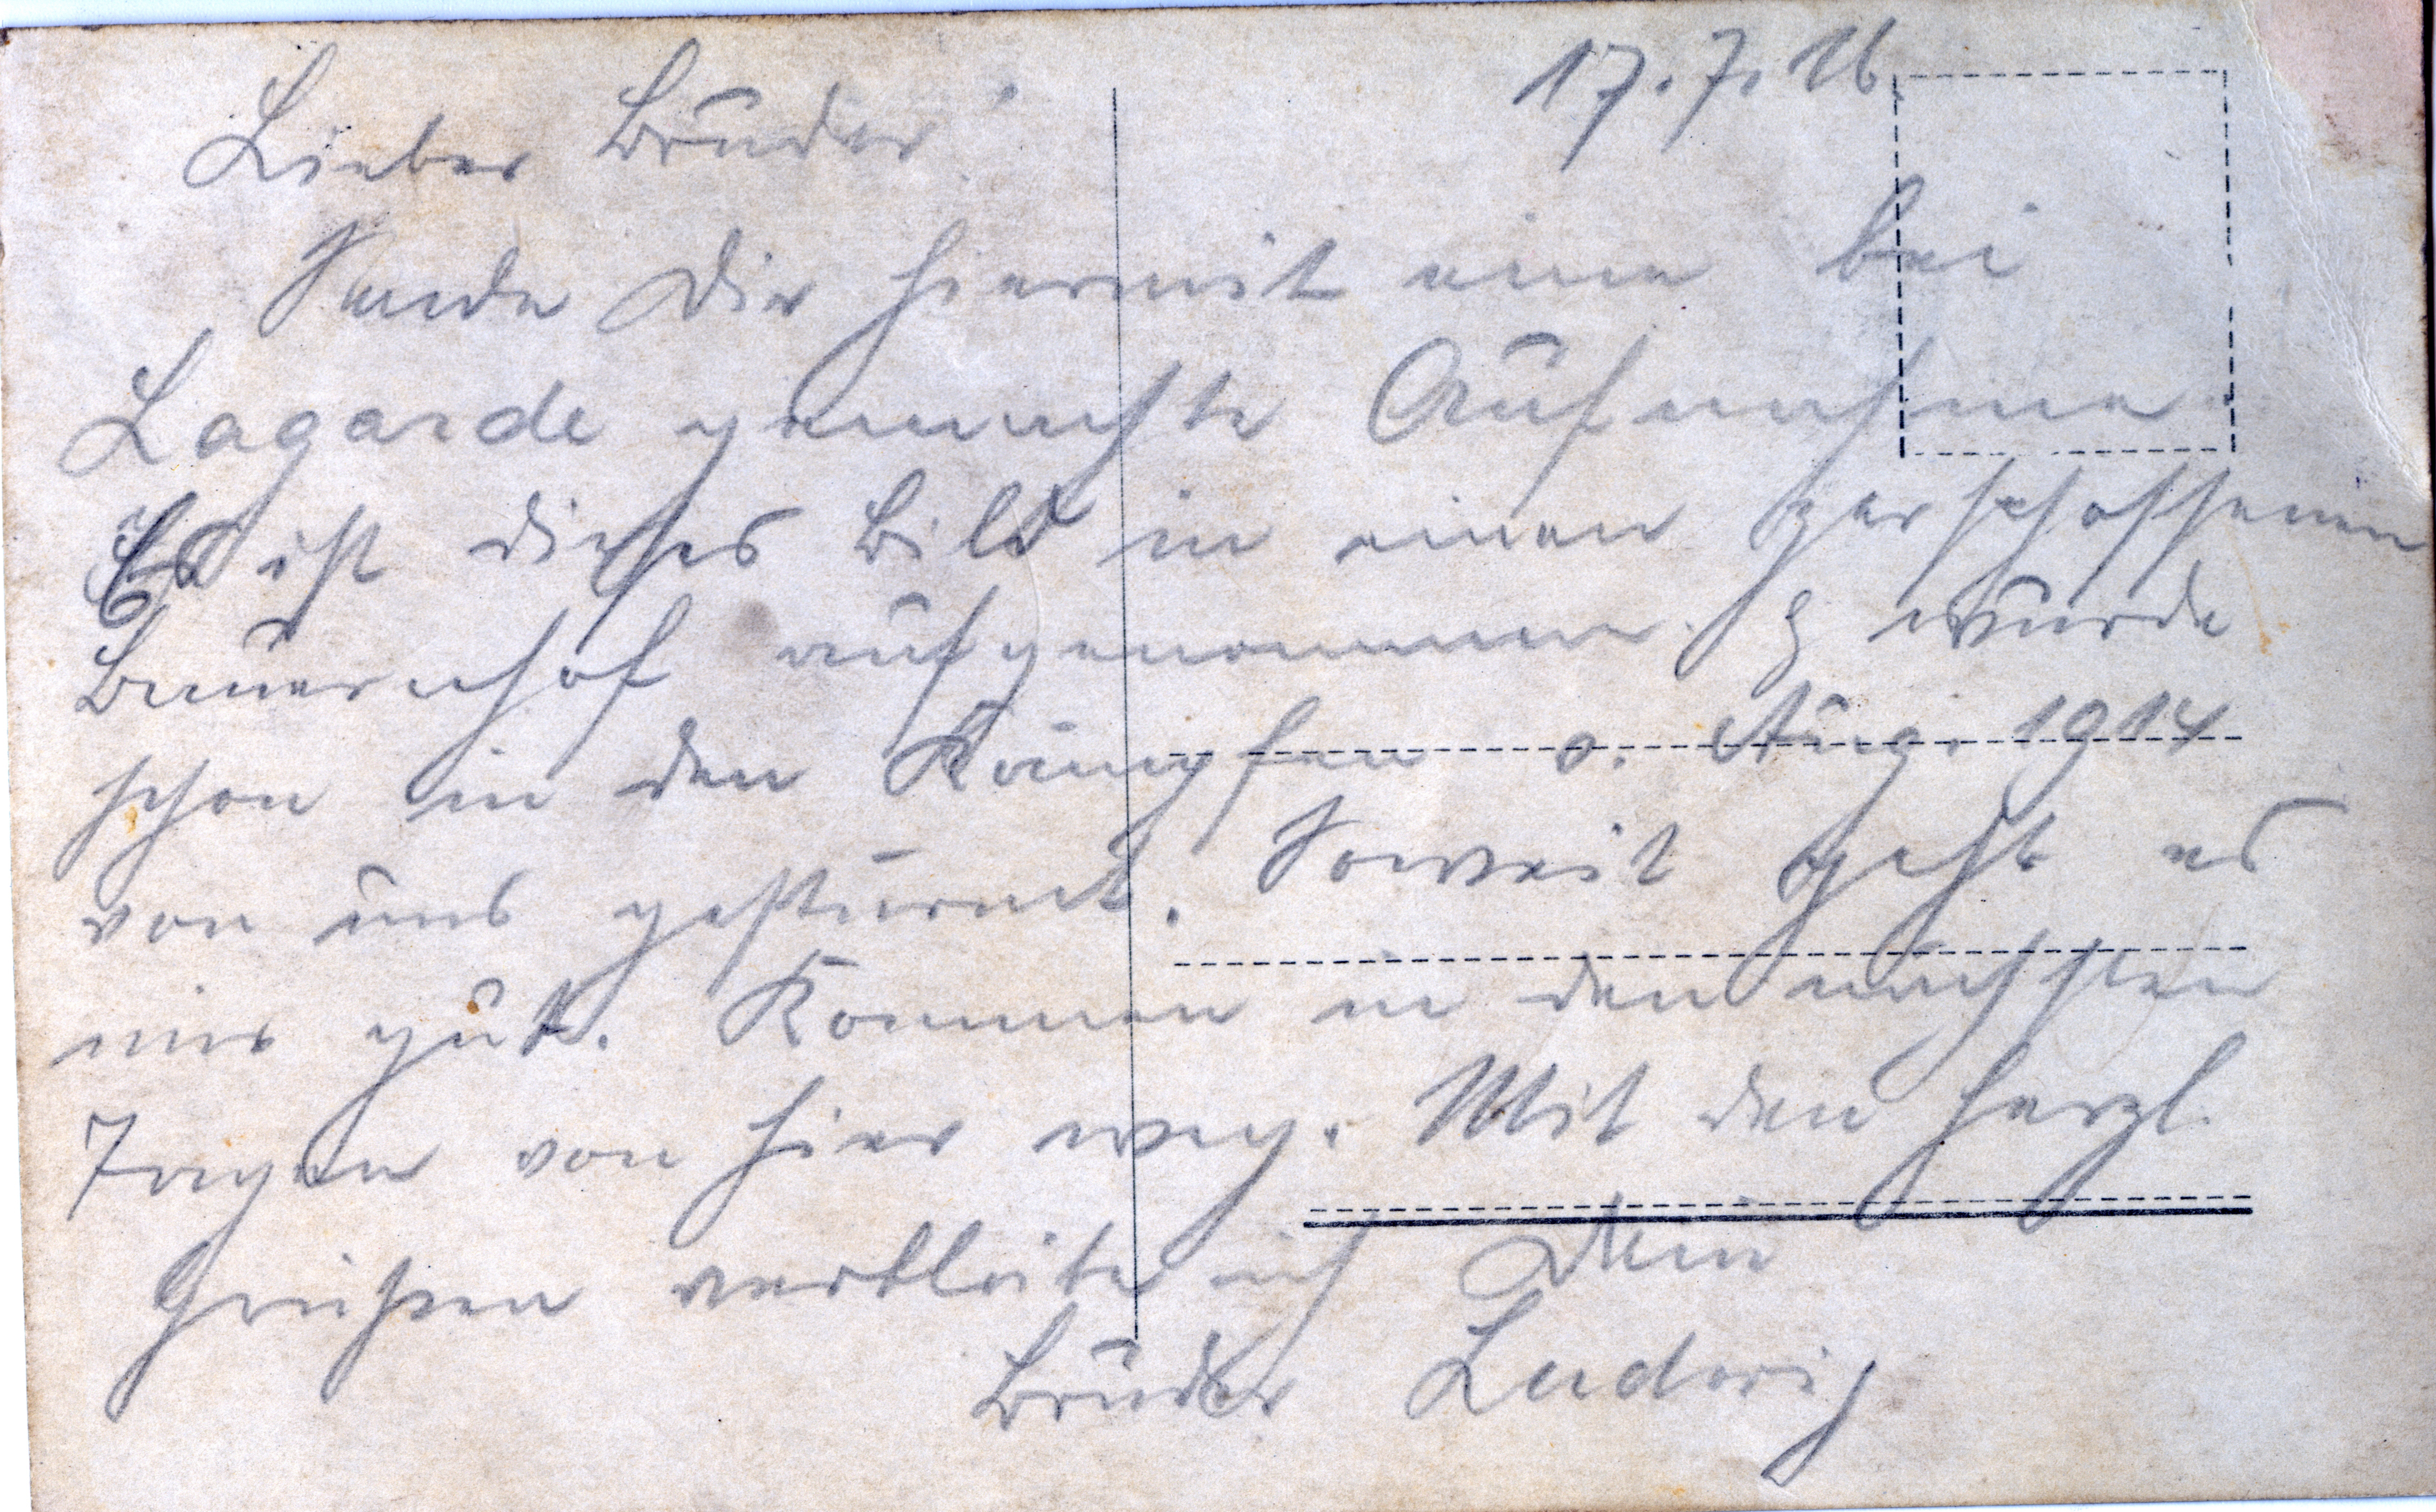 17.7.16.
Lieber Bruder!
Sende Dir hiermit eine bei
Lagarde gemachte Aufnahme.
Es ist dieses Bild in einen zerschossenen
Bauernhof aufgenommen. & wurde
schon in den Kämpfen v. Aug. 1914
von uns gestürmt. Soweit geht es
mir gut. Kommen in den nächsten
Tagen von hier weg. Mit den herzl.
Grüßen verbleibe ich Dein
Bruder Ludwig